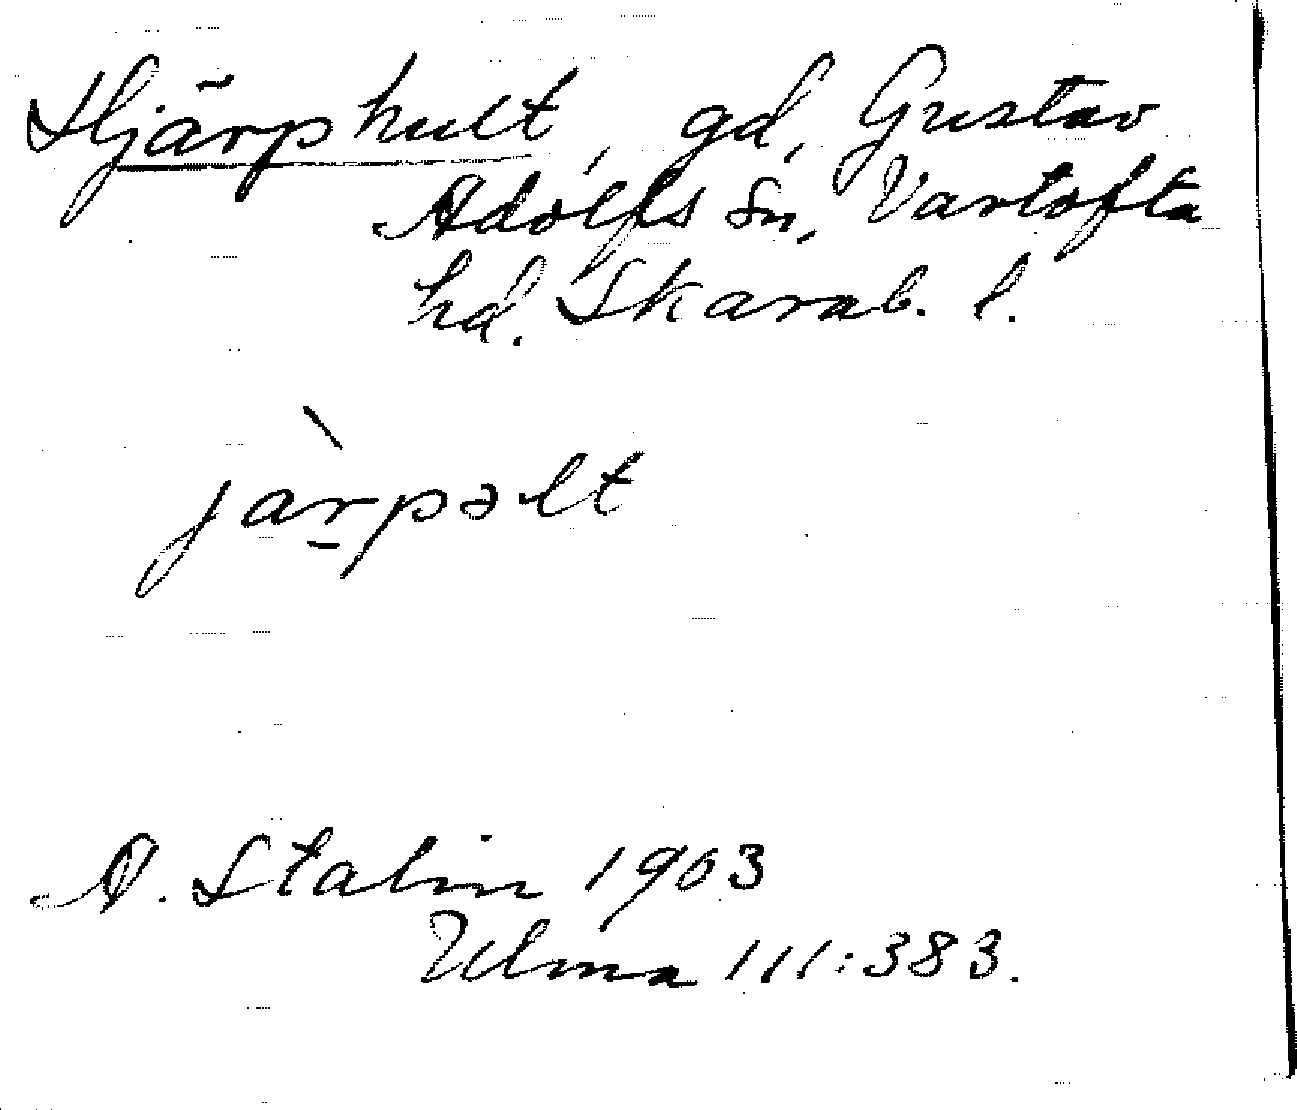 Hjärphult, gd, Gustav
Adolfs sn, Vartofta
hd. Skarab. l.
jàr̲pəlt
A. Stalin 1903
Ulma 111:383.